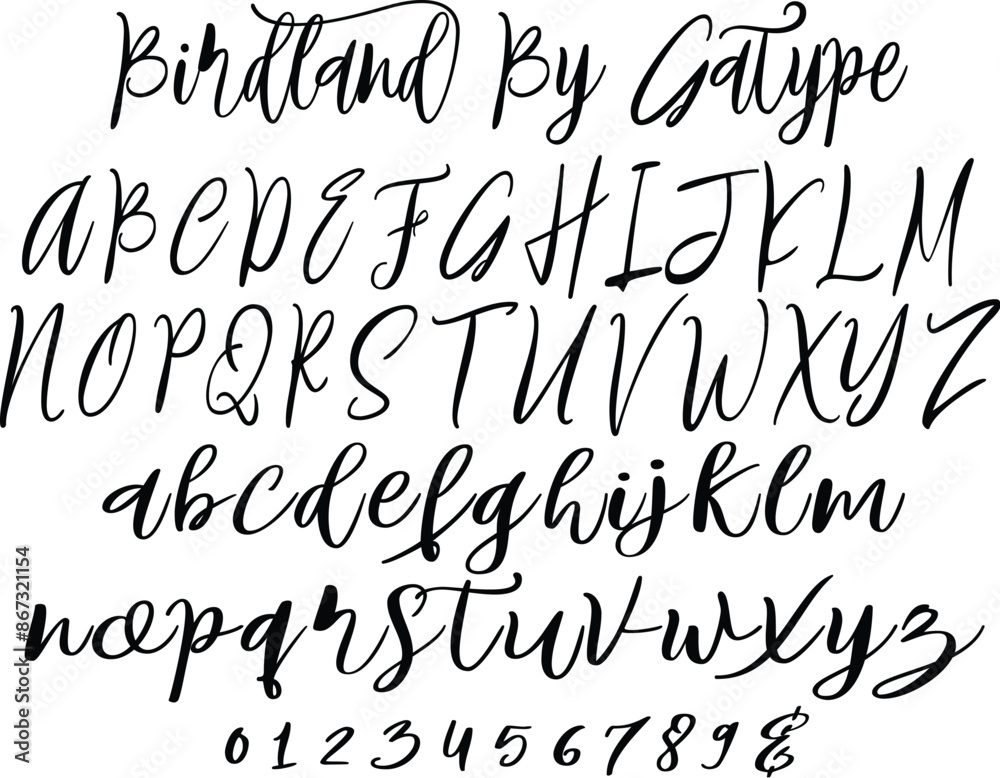 Birdland By Gatype
ABCDEFGHIJKLM
NOPQRSTUVWXYZ
abcdefghijklm
nopqrstuvwxyz
0123456789&
Adobe Stock | #867321154